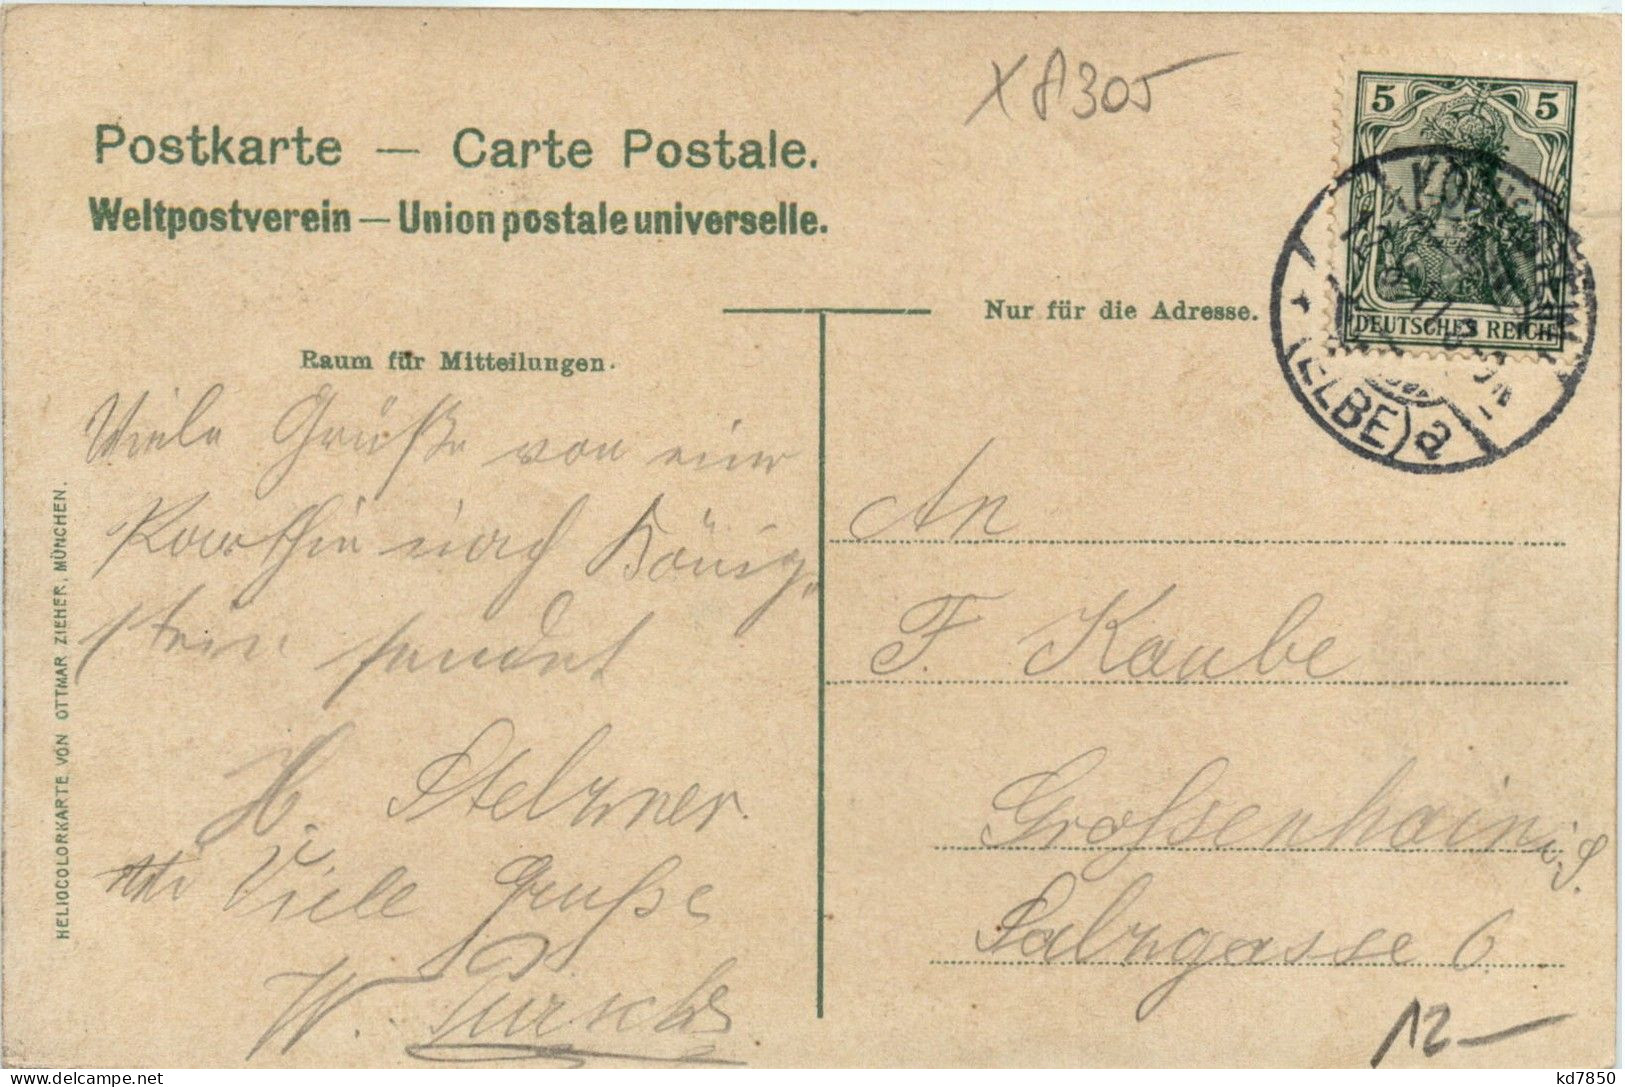 X A 305
Postkarte — Carte Postale.
Weltpostverein — Union postale universelle.
5 5
DEUTSCHES REICH
(ELBE) a
Nur für die Adresse.
Raum für Mitteilungen.
Viele Grüße von einer
nach König-
stein sendet
H. Stelzner.
Viele Grüße
W.
An
F. Kaube
Grossenhain i. S.
Salzgasse 6
HELIOCOLORKARTE VON OTTMAR ZIEHER, MÜNCHEN.
12 —
kd7850